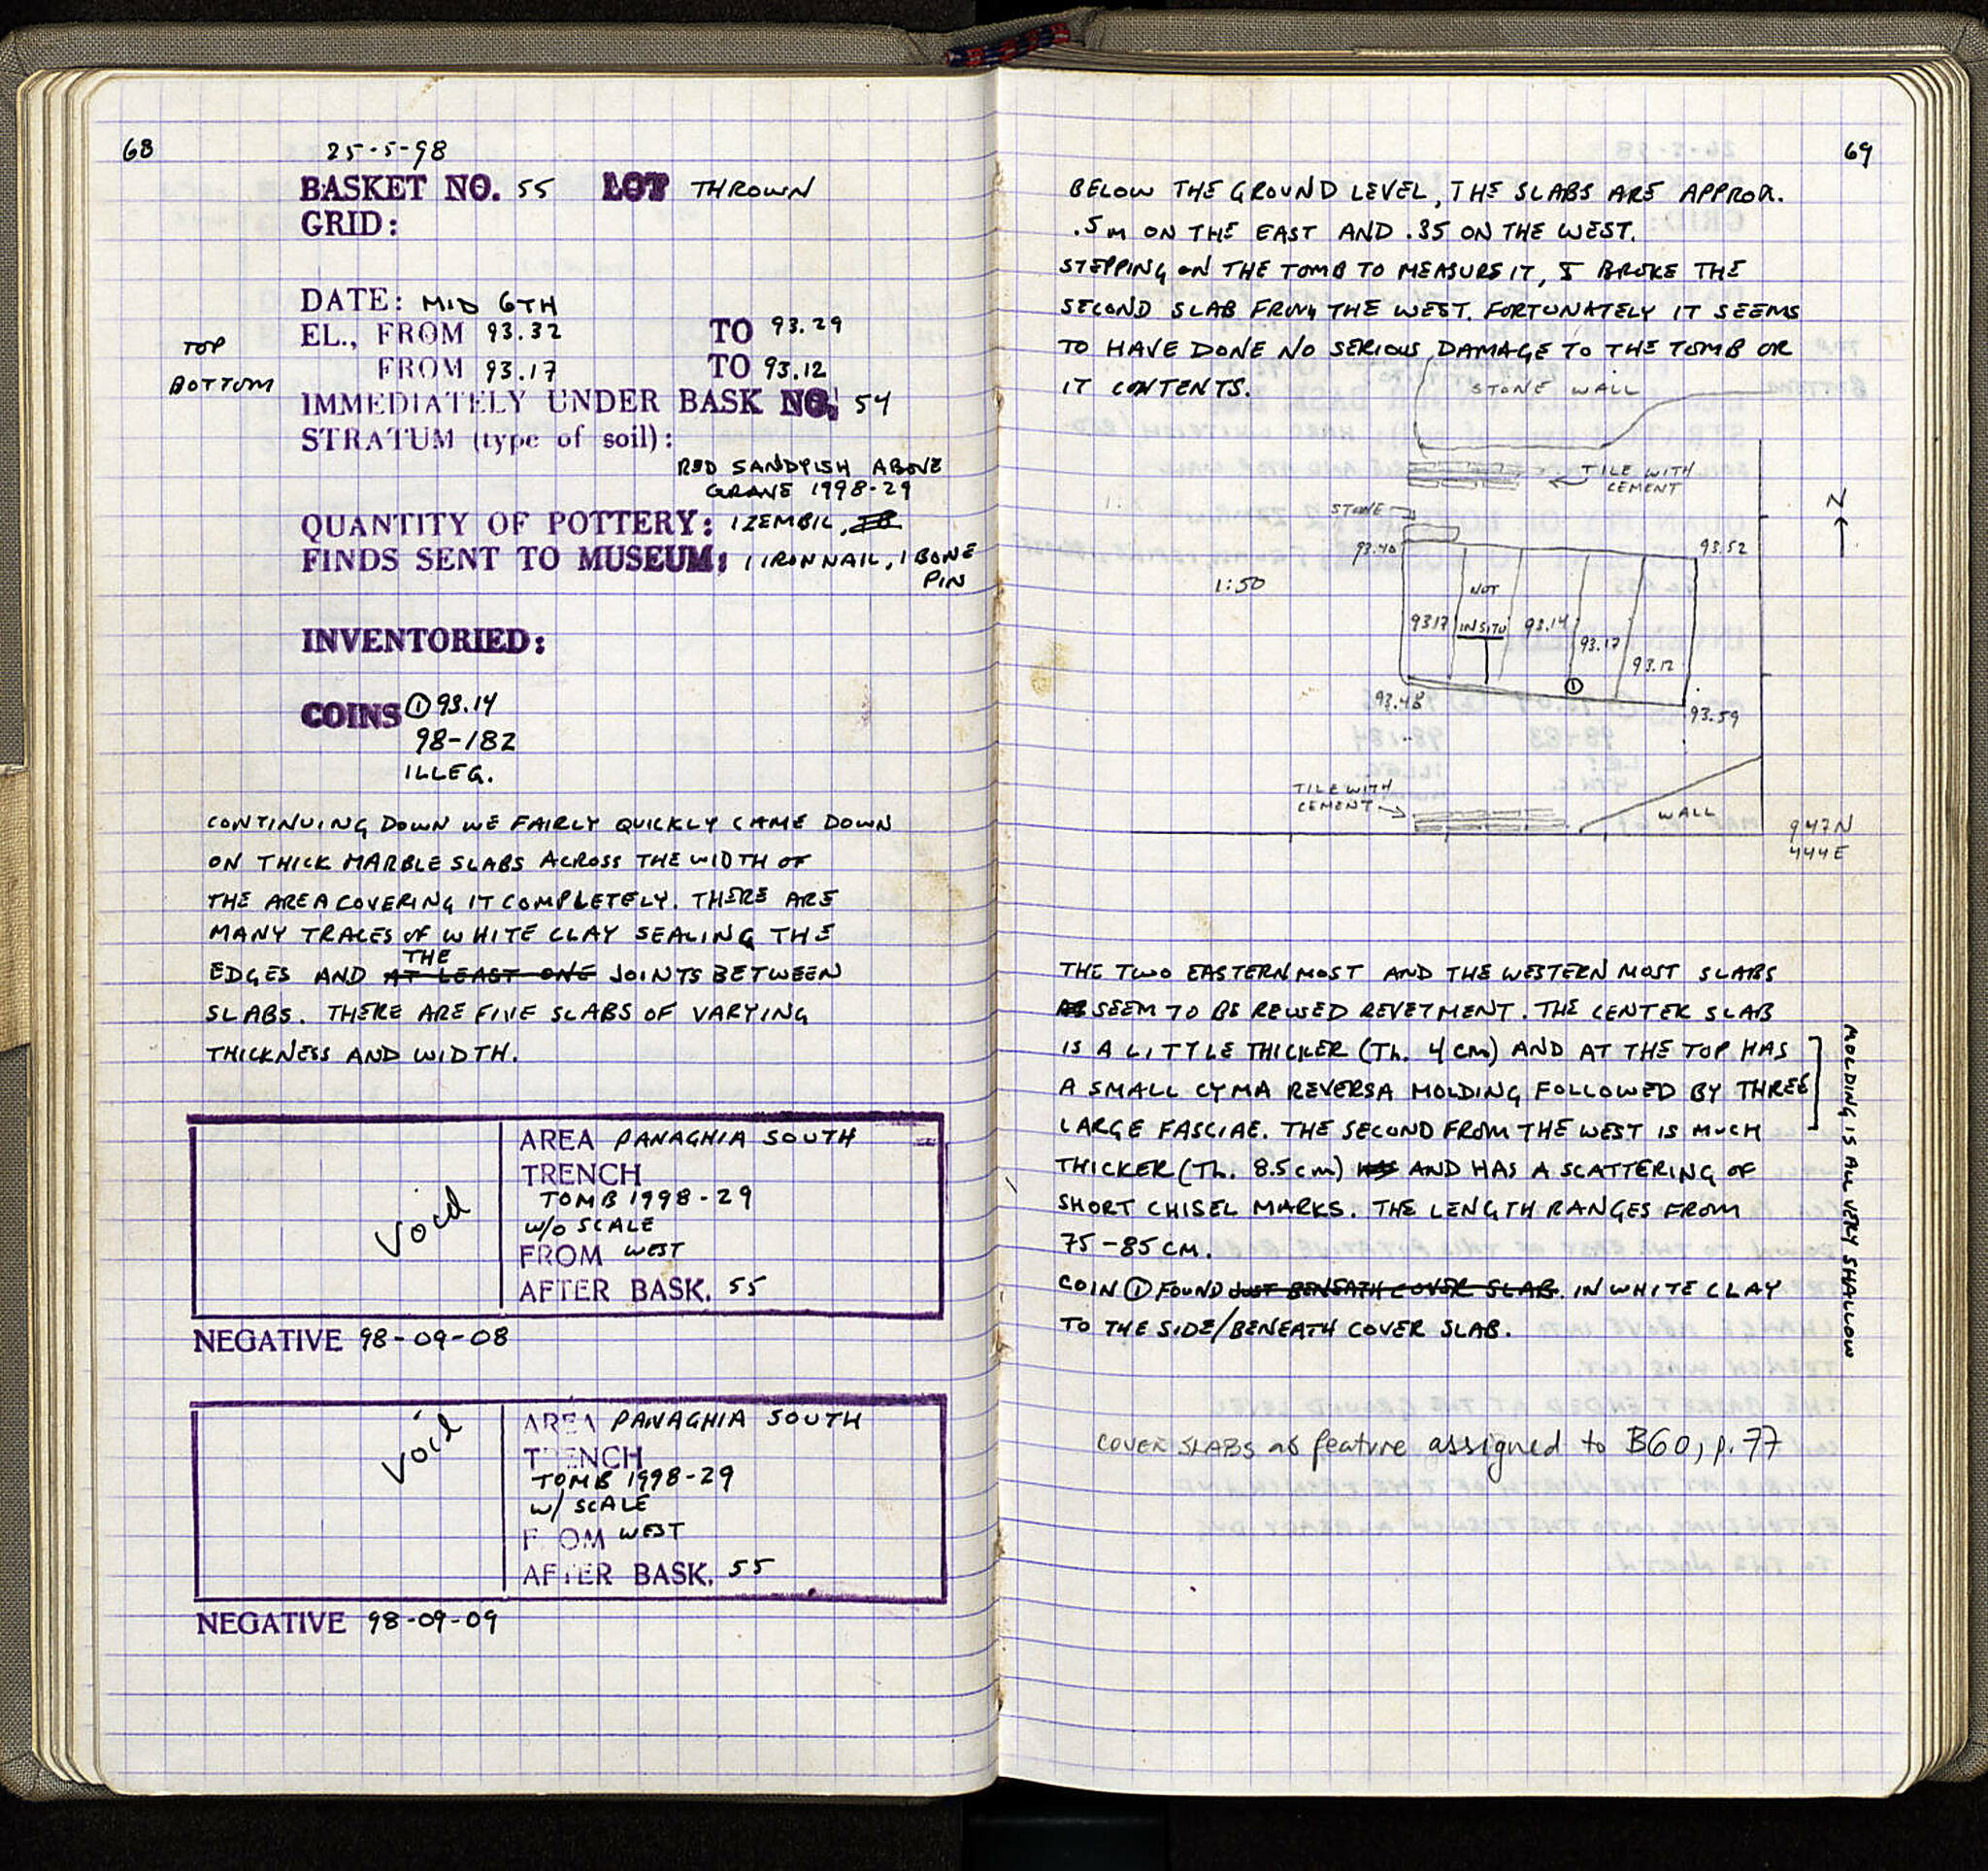 68
25-5-98
BASKET NO. 55 LOT THROWN
GRID:
DATE: MID 6TH
TOP EL., FROM 93.32 TO 93.29
BOTTOM FROM 93.17 TO 93.12
IMMEDIATELY UNDER BASK NO. 54
STRATUM (type of soil):
RED SANDYISH ABOVE
GRAVE 1998-29
QUANTITY OF POTTERY: 1 ZEMBIL,
FINDS SENT TO MUSEUM: 1 IRON NAIL, 1 BONE
PIN
INVENTORIED:
COINS ① 93.14
98-182
ILLEG.
CONTINUING DOWN WE FAIRLY QUICKLY CAME DOWN
ON THICK MARBLE SLABS ACROSS THE WIDTH OF
THE AREA COVERING IT COMPLETELY. THERE ARE
MANY TRACES OF WHITE CLAY SEALING THE
THE
EDGES AND AT LEAST ONE JOINTS BETWEEN
SLABS. THERE ARE FIVE SLABS OF VARYING
THICKNESS AND WIDTH.
void
AREA PANAGHIA SOUTH
TRENCH
TOMB 1998-29
W/O SCALE
FROM WEST
AFTER BASK. 55
NEGATIVE 98-09-08
void
AREA PANAGHIA SOUTH
TRENCH
TOMB 1998-29
W/ SCALE
FROM WEST
AFTER BASK. 55
NEGATIVE 98-09-09
69
BELOW THE GROUND LEVEL, THE SLABS ARE APPROX.
.5m ON THE EAST AND .35 ON THE WEST.
STEPPING ON THE TOMB TO MEASURE IT, I BROKE THE
SECOND SLAB FROM THE WEST. FORTUNATELY IT SEEMS
TO HAVE DONE NO SERIOUS DAMAGE TO THE TOMB OR
IT CONTENTS.
STONE WALL
TILE WITH
CEMENT
N
STONE
93.40
93.52
1:50
NOT
IN SITU
93.17
93.14
93.17
93.12
①
93.48
93.59
TILE WITH
CEMENT
WALL
947N
444E
THE TWO EASTERNMOST AND THE WESTERN MOST SLABS
SEEM TO BE REUSED REVETMENT. THE CENTER SLAB
IS A LITTLE THICKER (Th. 4cm) AND AT THE TOP HAS
A SMALL CYMA REVERSA MOLDING FOLLOWED BY THREE
LARGE FASCIAE. THE SECOND FROM THE WEST IS MUCH
THICKER (Th. 8.5cm) HAS AND HAS A SCATTERING OF
SHORT CHISEL MARKS. THE LENGTH RANGES FROM
75-85 CM.
COIN ① FOUND JUST BENEATH COVER SLAB IN WHITE CLAY
TO THE SIDE/BENEATH COVER SLAB.
MOLDING IS ALL VERY SHALLOW
COVER SLABS as feature assigned to B60, p. 77